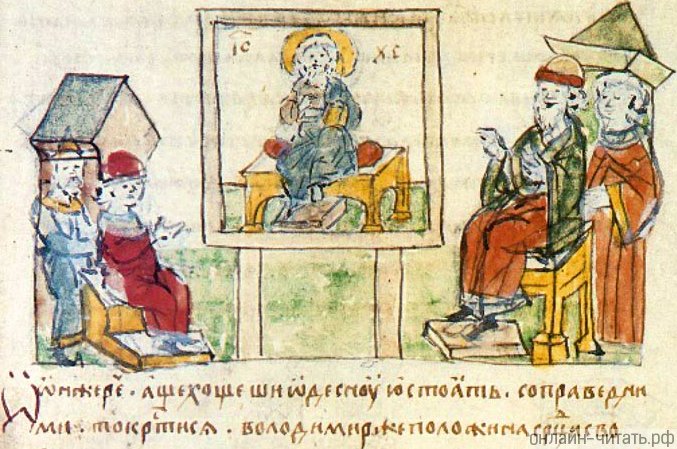 І҃С ХС
Ѡнжереⷱ . ащехощеши ѡдесноую стоꙗть . соправедни
ми . токрⷭтисѧ . володимирже положи насрⷣцисво
онлайн-читать.рф